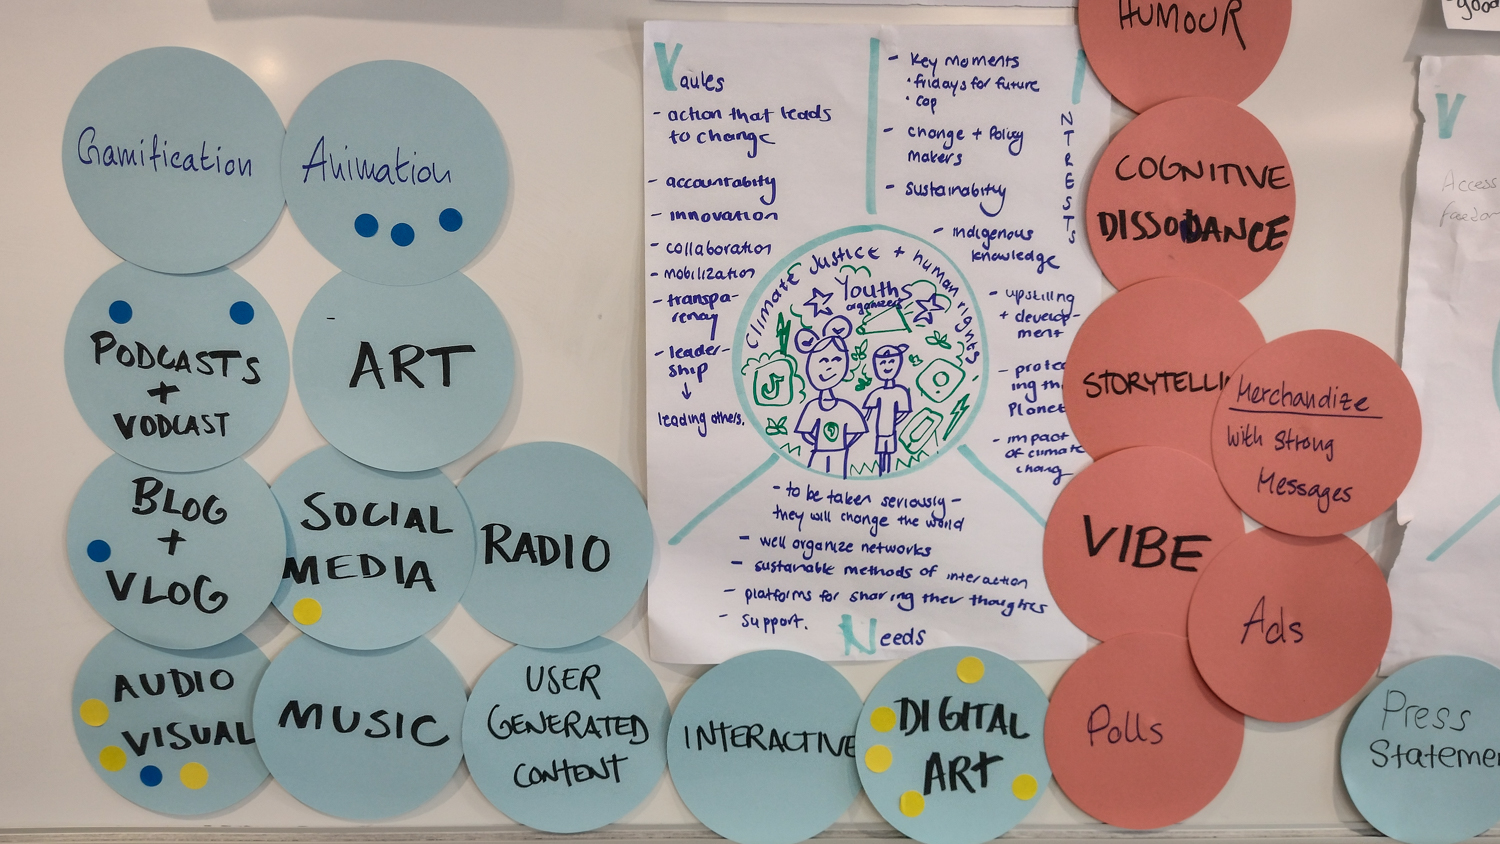 Gamification
Animation
PODCASTS
+
VODCAST
ART
BLOG
+
VLOG
SOCIAL
MEDIA
RADIO
AUDIO
VISUAL
MUSIC
USER
GENERATED
CONTENT
INTERACTIVE
DIGITAL
ART
Vaules
- action that leads
to change
- accountabity
- innovation
- collaboration
- mobilization
- transpa-
rency
- leader-
ship
↓
leading others.
- Key moments
• fridays for future
• COP
- change + Policy
makers
- sustainabity
- indigenous
knowledge
- upstilling
+ develop-
ment
- protec
ing th
Planet
- impact
of climate
chang
NTRESTS
Climate Justice + human rights
Youths
organizers
- to be taken seriously -
they will change the world
- well organize networks
- sustainable methods of interaction
- platforms for sharing their thoughtes
- support.
Needs
HUMOUR
COGNITIVE
DISSODANCE
STORYTELLI
Merchandize
with strong
Messages
VIBE
Ads
Polls
Press
Stateme
good
V
Access
freedom